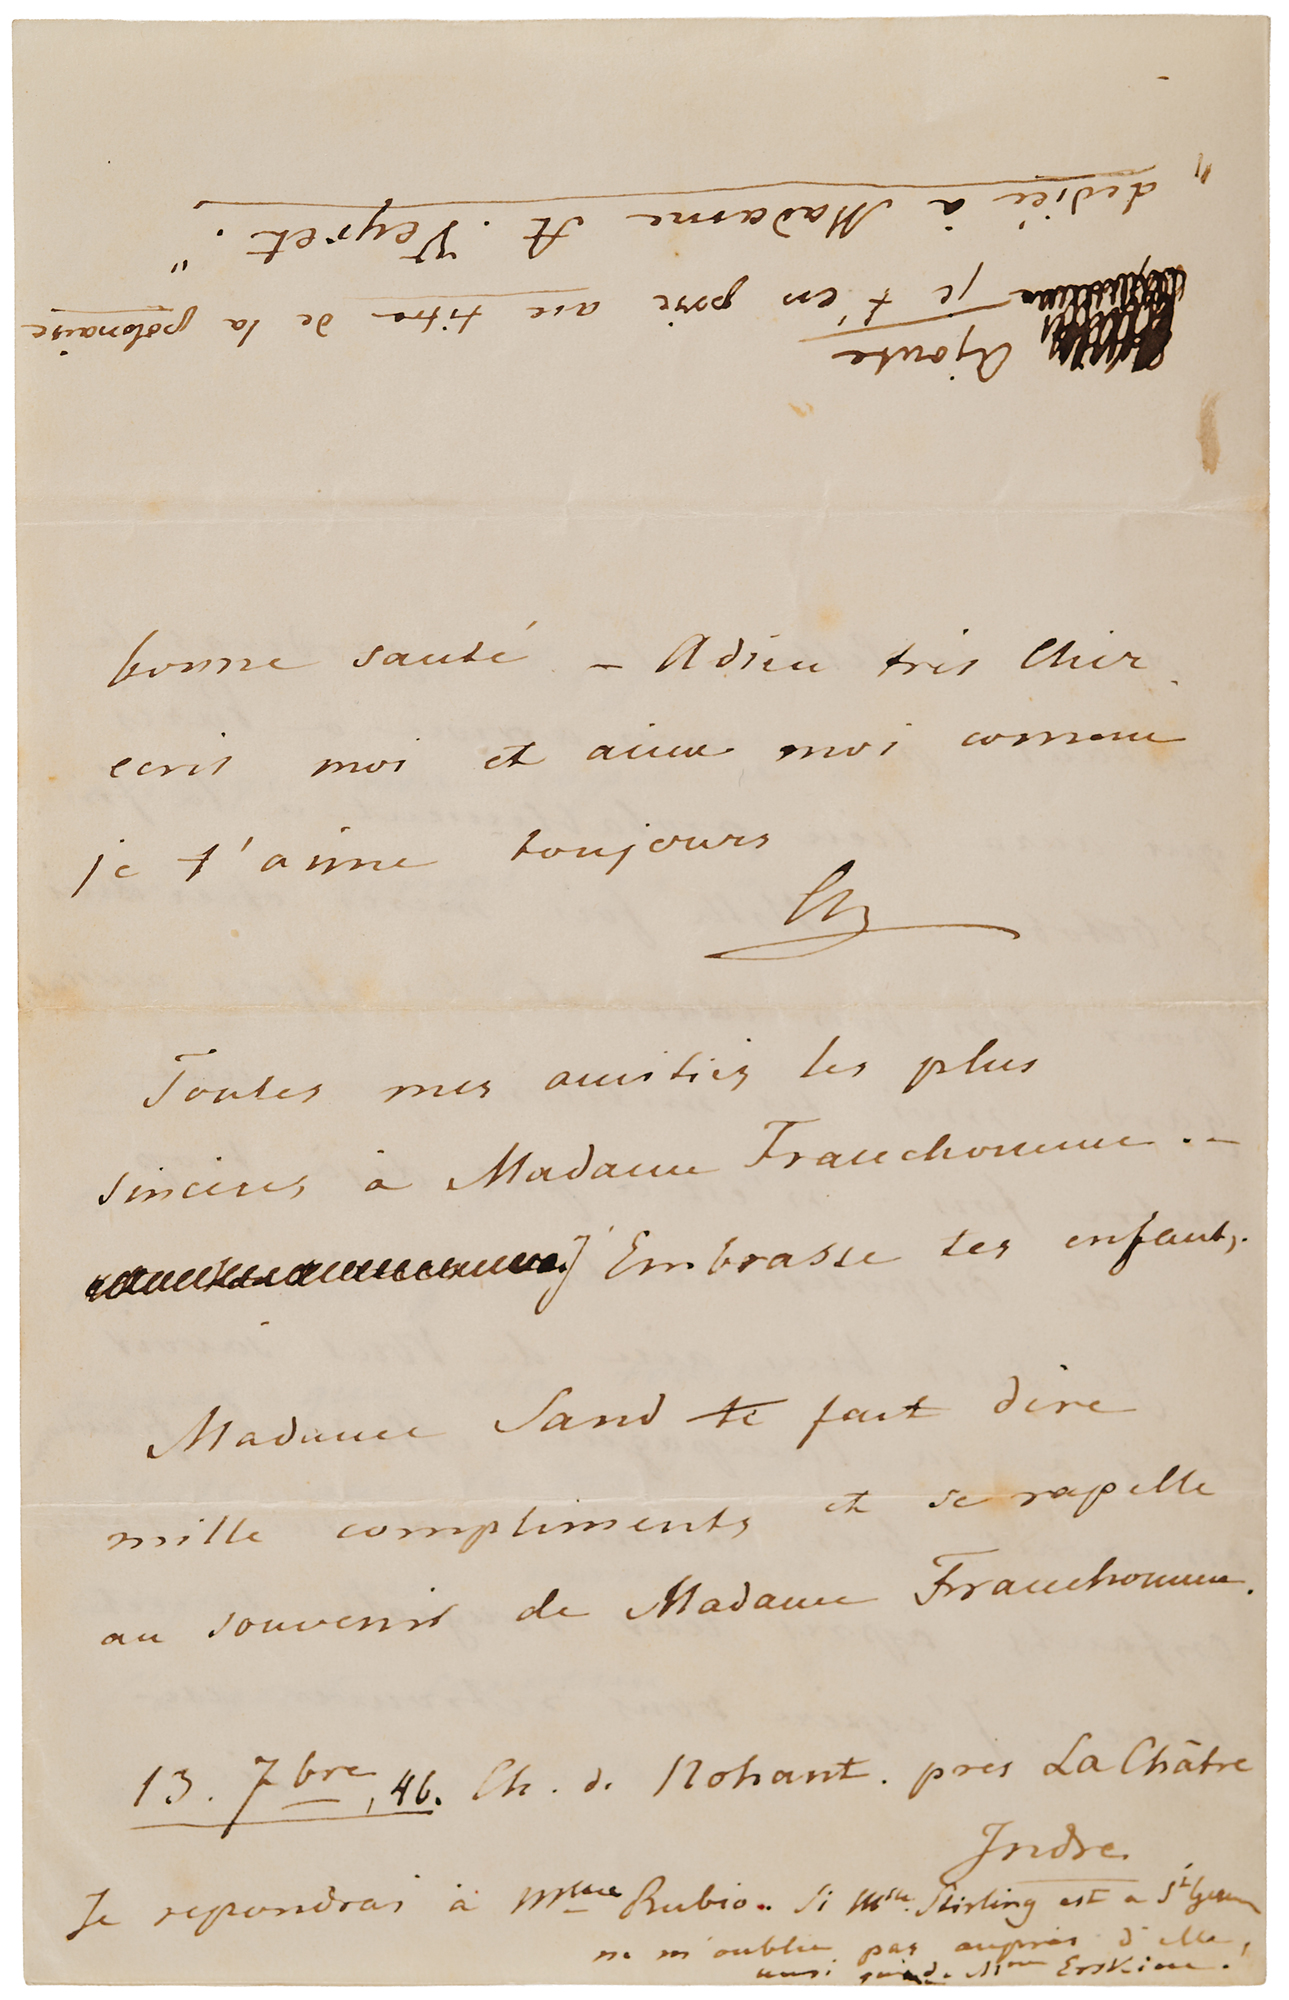 Ajoute
je t'en prie au titre de la polonaise
"dediée à Madame A. Veyret."
bonne santé – Adieu très cher
ecris moi et aime moi comme
je t'aime toujours
Ch
Toutes mes amitiés les plus
sincères à Madame Franchomme. –
Embrasse tes enfants.
Madame Sand te fait dire
mille compliments et se rapelle
au souvenir de Madame Franchomme.
13. 7bre, 46. Ch. d. Nohant. près La Châtre
Indre.
Je repondrai à Mme Rubio. Si Mlle Stirling est a St
ne m'oublie pas auprès d'elle,
ainsi que de Mme Erskine.